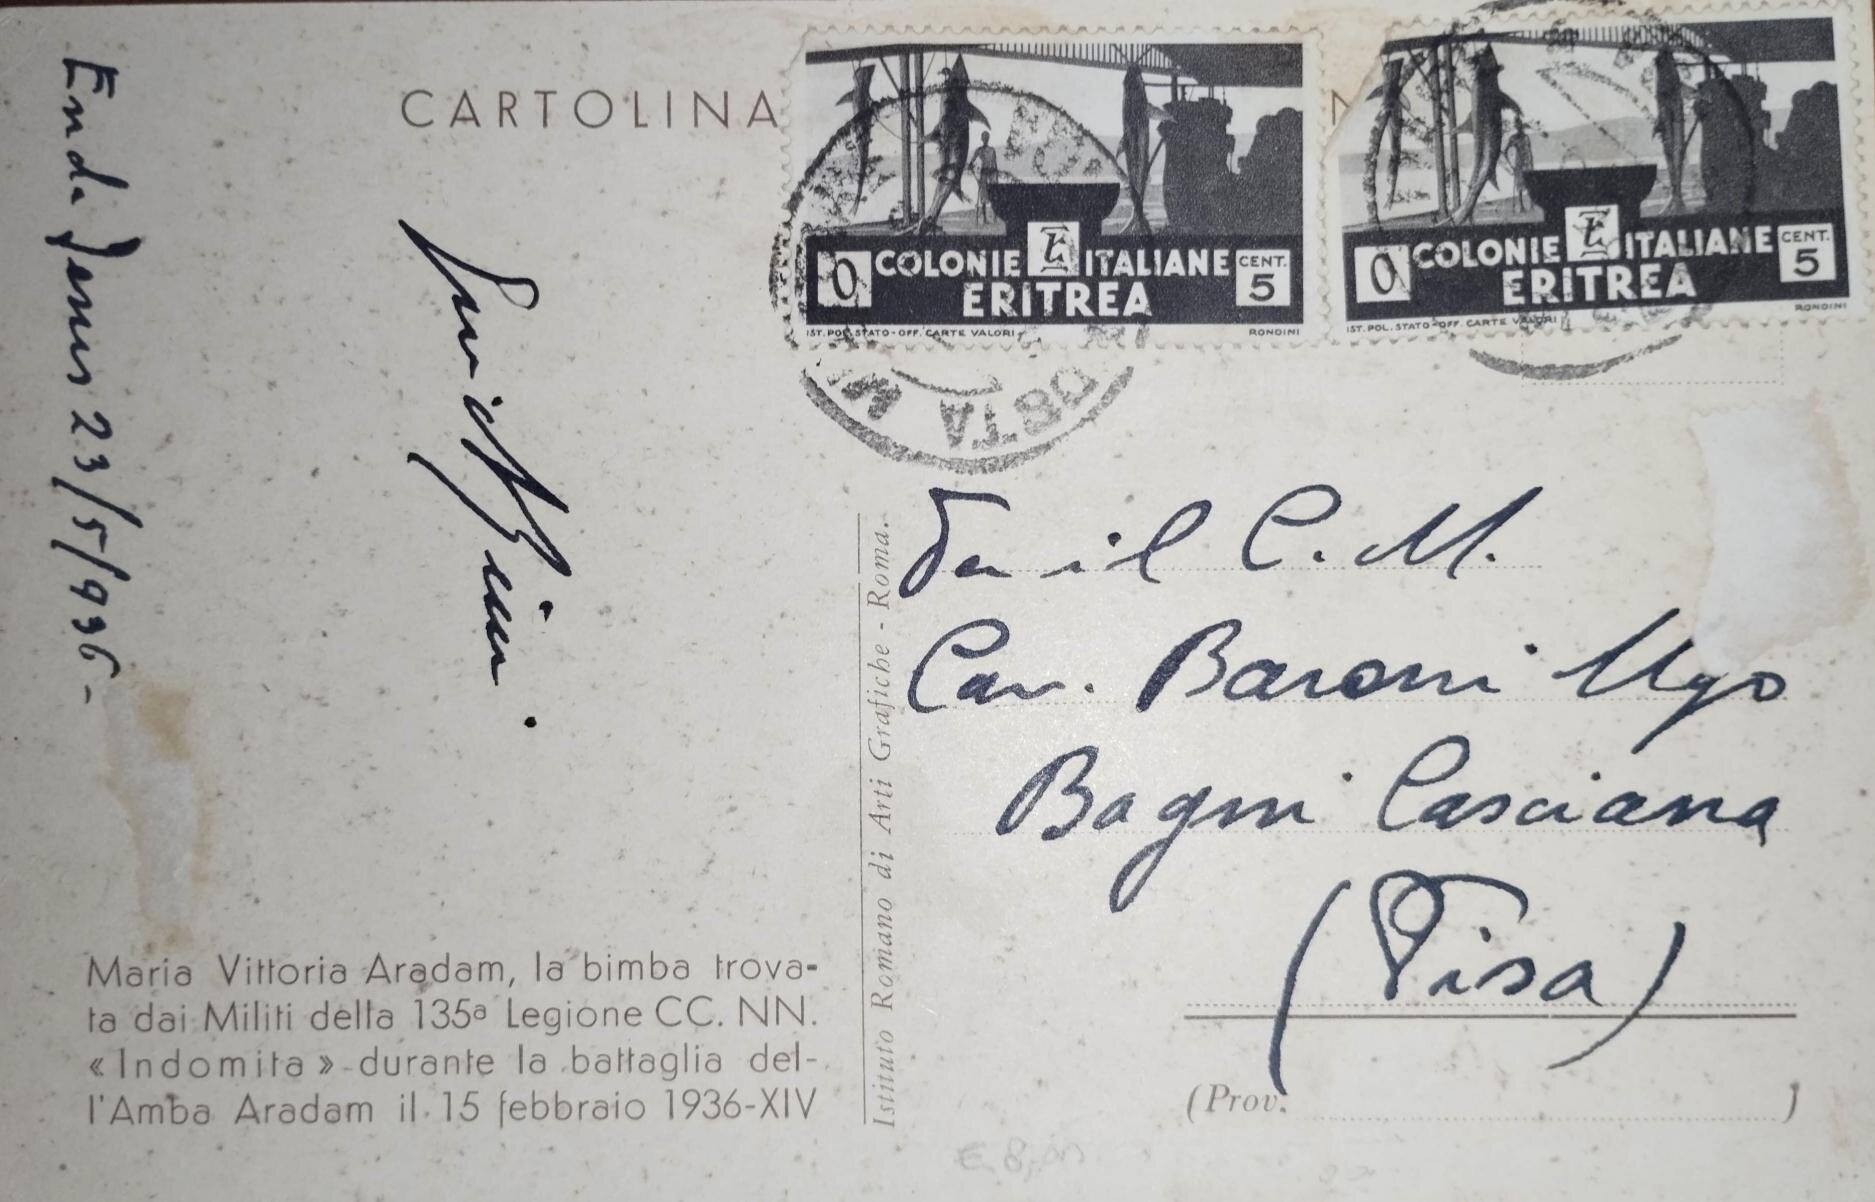 CARTOLINA
COLONIE ITALIANE
ERITREA
CENT.
5
IST. POL. STATO-OFF. CARTE VALORI
RONDINI
COLONIE ITALIANE
ERITREA
CENT.
5
IST. POL. STATO-OFF. CARTE VALORI
RONDINI
POSTA
Enda Jesus 23/5/936-
il C. M.
Cav. Baroni Ugo
Bagni Casciana
(Pisa)
Istituto Romano di Arti Grafiche - Roma.
Maria Vittoria Aradam, la bimba trova-
ta dai Militi della 135ª Legione CC. NN.
«Indomita» durante la battaglia del-
l'Amba Aradam il 15 febbraio 1936-XIV
(Prov. )